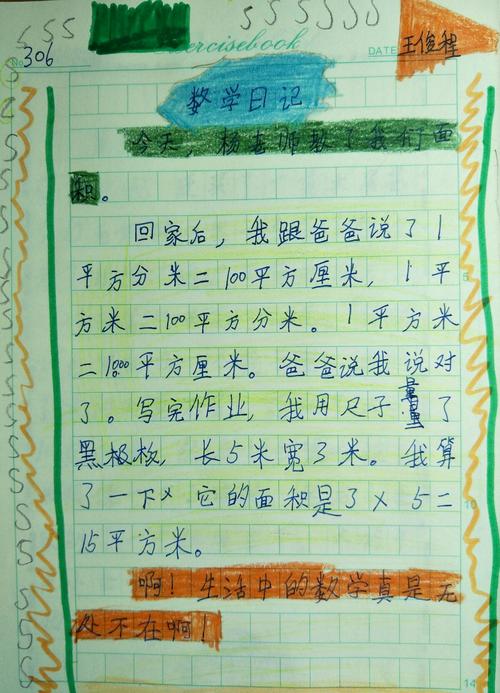 SSS SSSSSSS
Exercisebook
No 306 DATE 王俊程
数学日记
今天，杨老师教了我们面
积。
回家后，我跟爸爸说了1
平方分米二100平方厘米，1平
方米二100平方分米。1平方米
二1000平方厘米。爸爸说我说对
了。写完作业，我用尺子量了
黑极板，长5米宽3米。我算
了一下，它的面积是3×5二
15平方米。
啊！生活中的数学真是无
处不在啊！
14